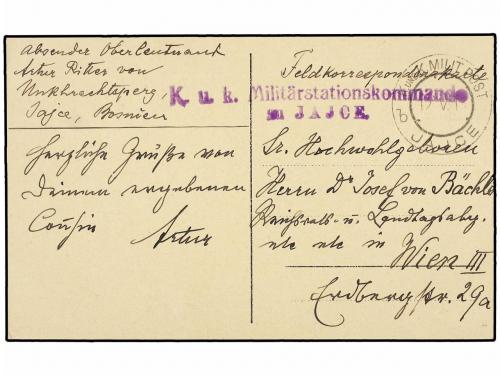 Absender Oberleutnant
Artur Ritter von
Unkhrechtsperg,
Jajce, Bosnien
Herzliche Grüße von
Deinem ergebenen
Cousin
Artur
Feldkorrespondenzkarte
K. u. k. Militärstationskommando
in JAJCE.
K.u.K. MILIT. POST
JAJCE
Sr. Hochwohlgeboren
Herrn Dr Josef von Bächle
Reichsrats- u. Landtagsabg.
etc etc in
Wien III
Erdbergstr. 29a